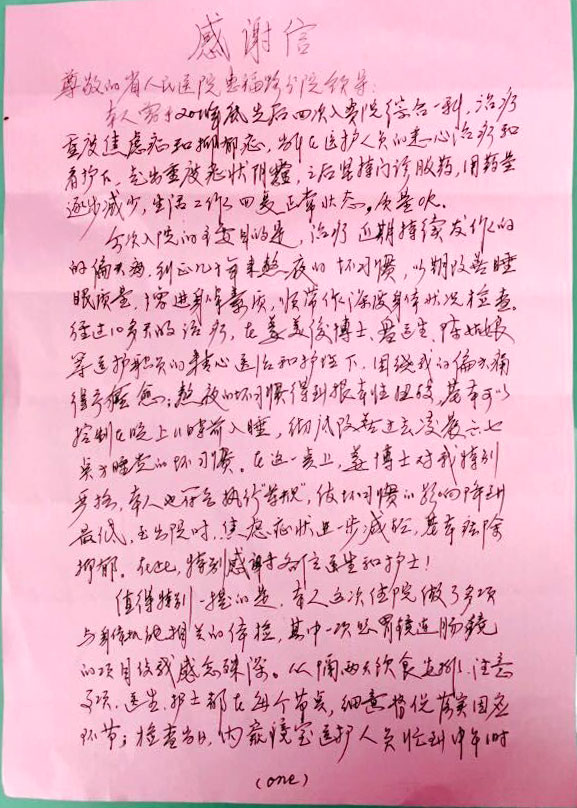 感谢信
尊敬的省人民医院惠福路分院领导:
本人曾于20年底先后四次入贵院综合一科,治疗
重度焦虑症和抑郁症,当年在医护人员的悉心治疗和
看护下,走出重度症状阴霾,之后坚持门诊服药,用药量
逐步减少,生活工作回复正常状态,质量
今次入院的主要目的是,治疗近期持续发作的
的偏头痛,纠正几十年来熬夜的坏习惯,以期改善睡
眠质量,增进身体素质,临带作深度身体状况检查。
经过10多天的治疗,在姜美俊博士、君医生、陈姑娘
等医护职员的精心医治和护理下,围绕我的偏头痛
得于痊愈;熬夜的坏习惯得到根本性扭转,基本可以
控制在晚上11时前入睡,彻底改善过去凌晨六七
点才睡觉的坏习惯。在这一点上,姜博士对我特别
严格,本人也符合执行,使坏习惯的影响降到
最低,至出院时,焦虑症状进一步减轻,基本祛除
抑郁。在此,特别感谢各位医生和护士!
值得特别一提的是,本人这次住院做了多项
与身体机能相关的体检,其中一项是胃镜连肠镜
的项目使我感觉殊深。从隔两天饮食安排、注意
事项,医生、护士都在每个节点,细意督促落实因应
环节;检查当日,内窥镜室医护人员忙到中午1时
(one)